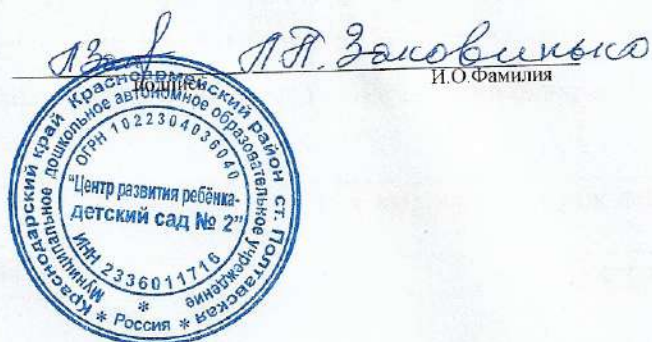 Л.П. Заковинько
подпись
И.О.Фамилия
Краснодарский край Красноармейский район ст. Полтавская
* Россия *
Муниципальное дошкольное автономное образовательное учреждение
*
ОГРН 1022304036040
"Центр развития ребёнка-
детский сад № 2"
ИНН 2336011716